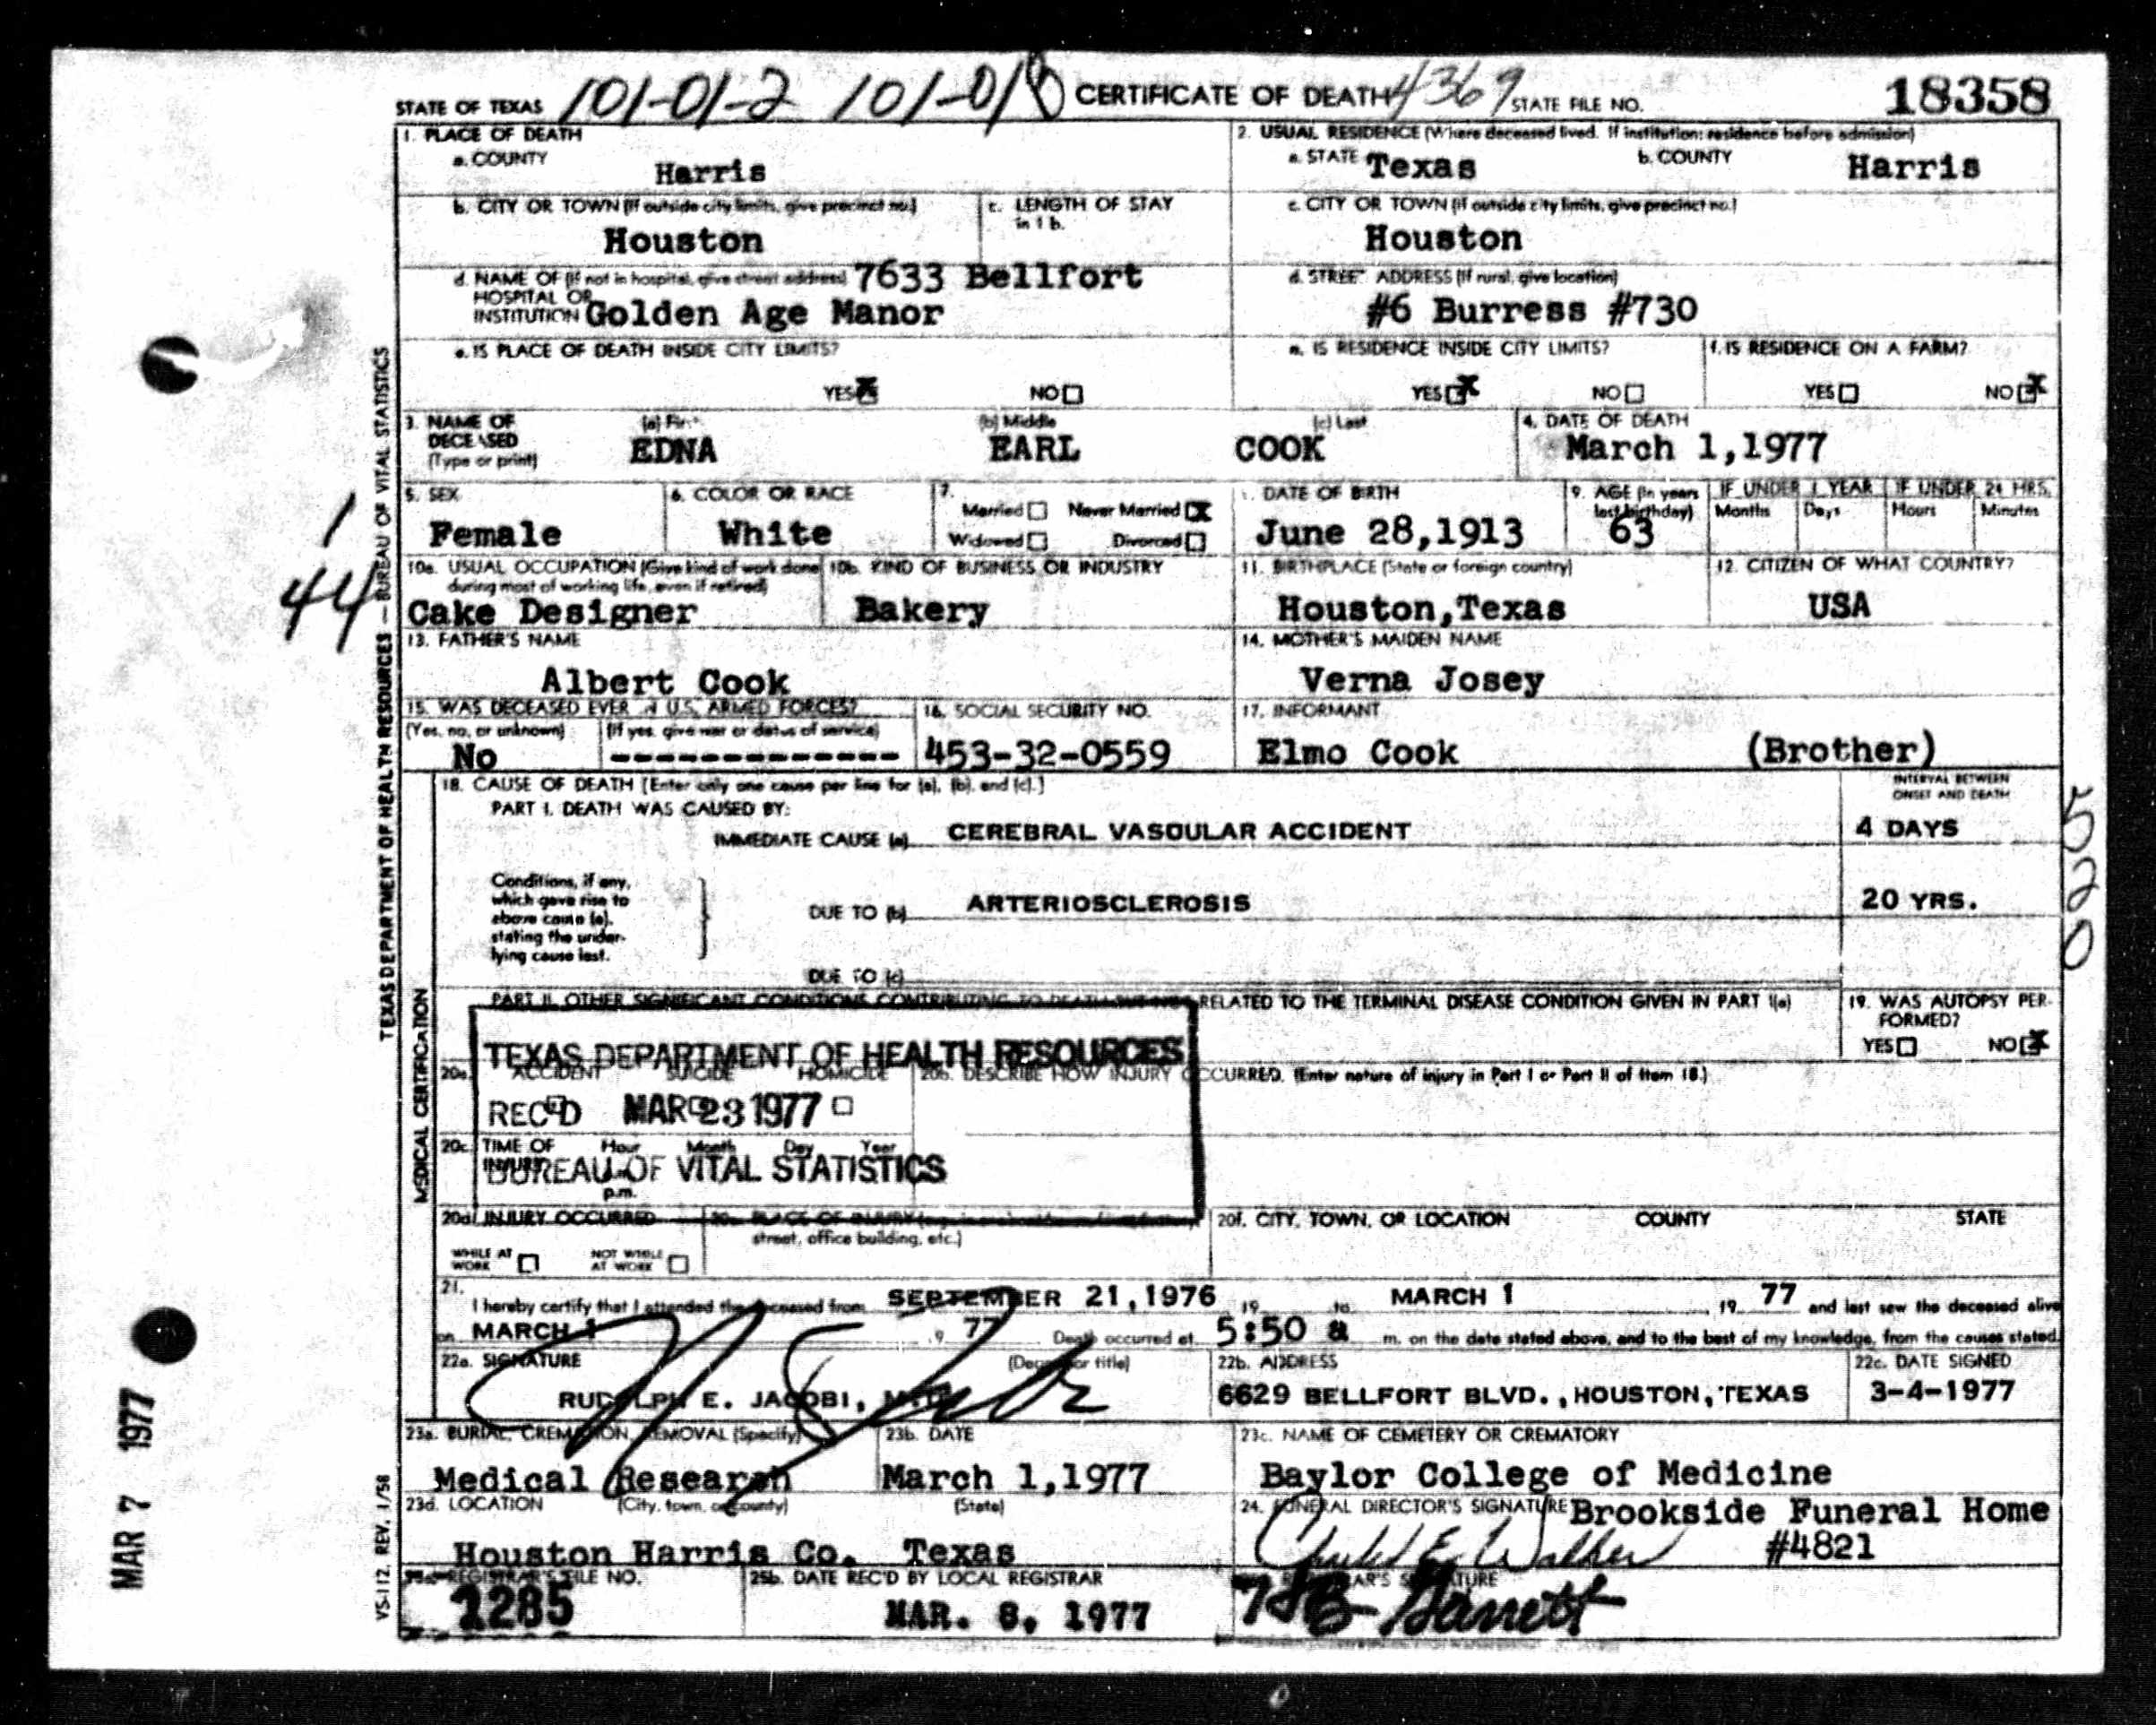 STATE OF TEXAS 101-01-2 101-018 CERTIFICATE OF DEATH 4369 STATE FILE NO. 18358
1. PLACE OF DEATH
a. COUNTY
Harris
2. USUAL RESIDENCE (Where deceased lived. If institution: residence before admission)
a. STATE Texas b. COUNTY Harris
b. CITY OR TOWN (If outside city limits, give precinct no.)
Houston
c. LENGTH OF STAY
in 1 b.
c. CITY OR TOWN (If outside city limits, give precinct no.)
Houston
d. NAME OF (If not in hospital, give street address) 7633 Bellfort
HOSPITAL OR
INSTITUTION Golden Age Manor
d. STREET ADDRESS (If rural, give location)
#6 Burress #730
e. IS PLACE OF DEATH INSIDE CITY LIMITS?
YES X NO
e. IS RESIDENCE INSIDE CITY LIMITS?
YES X NO
f. IS RESIDENCE ON A FARM?
YES NO X
3. NAME OF
DECEASED
(Type or print)
(a) First (b) Middle (c) Last
EDNA EARL COOK
4. DATE OF DEATH
March 1,1977
5. SEX
Female
6. COLOR OR RACE
White
7.
Married Never Married X
Widowed Divorced
DATE OF BIRTH
June 28,1913
9. AGE (In years
last birthday)
63
IF UNDER 1 YEAR
Months Days
IF UNDER 24 HRS.
Hours Minutes
10a. USUAL OCCUPATION (Give kind of work done
during most of working life, even if retired)
Cake Designer
10b. KIND OF BUSINESS OR INDUSTRY
Bakery
11. BIRTHPLACE (State or foreign country)
Houston,Texas
12. CITIZEN OF WHAT COUNTRY?
USA
13. FATHER'S NAME
Albert Cook
14. MOTHER'S MAIDEN NAME
Verna Josey
15. WAS DECEASED EVER IN U.S. ARMED FORCES?
(Yes, no, or unknown) (If yes, give war or dates of service)
No -------------
16. SOCIAL SECURITY NO.
453-32-0559
17. INFORMANT
Elmo Cook (Brother)
18. CAUSE OF DEATH [Enter only one cause per line for (a), (b), and (c).]
PART I. DEATH WAS CAUSED BY:
INTERVAL BETWEEN
ONSET AND DEATH
IMMEDIATE CAUSE (a) CEREBRAL VASOULAR ACCIDENT 4 DAYS
Conditions, if any,
which gave rise to
above cause (a),
stating the under-
lying cause last.
DUE TO (b) ARTERIOSCLEROSIS 20 YRS.
DUE TO (c)
PART II. OTHER SIGNIFICANT CONDITIONS CONTRIBUTING TO DEATH BUT NOT RELATED TO THE TERMINAL DISEASE CONDITION GIVEN IN PART I(a)
19. WAS AUTOPSY PER-
FORMED?
YES NO X
TEXAS DEPARTMENT OF HEALTH RESOURCES
REC'D MAR 23 1977
BUREAU OF VITAL STATISTICS
20a. ACCIDENT SUICIDE HOMICIDE
20b. DESCRIBE HOW INJURY OCCURRED. (Enter nature of injury in Part I or Part II of Item 18.)
20c. TIME OF
INJURY
Hour Month Day Year
p.m.
20d. INJURY OCCURRED
WHILE AT
WORK
NOT WHILE
AT WORK
PLACE OF INJURY
street, office building, etc.)
20f. CITY, TOWN, OR LOCATION COUNTY STATE
21.
I hereby certify that I attended the deceased from SEPTEMBER 21,1976 19 to MARCH 1 19 77 and last saw the deceased alive
on MARCH 1 19 77 Death occurred at 5:50 a m. on the date stated above, and to the best of my knowledge, from the causes stated.
22a. SIGNATURE (Degree or title)
RUDOLPH E. JACOBI, M.D.
22b. ADDRESS
6629 BELLFORT BLVD.,HOUSTON,TEXAS
22c. DATE SIGNED
3-4-1977
23a. BURIAL, CREMATION, REMOVAL (Specify)
Medical Research
23b. DATE
March 1,1977
23c. NAME OF CEMETERY OR CREMATORY
Baylor College of Medicine
23d. LOCATION (City, town, or county) (State)
Houston Harris Co. Texas
24. FUNERAL DIRECTOR'S SIGNATURE Brookside Funeral Home
Charles E. Walker #4821
REGISTRAR'S FILE NO.
2285
25b. DATE REC'D BY LOCAL REGISTRAR
MAR. 8, 1977
REGISTRAR'S SIGNATURE
Garrett
TEXAS DEPARTMENT OF HEALTH RESOURCES — BUREAU OF VITAL STATISTICS
MEDICAL CERTIFICATION
VS-112, REV. 1/58
MAR 7 1977
1
44
520